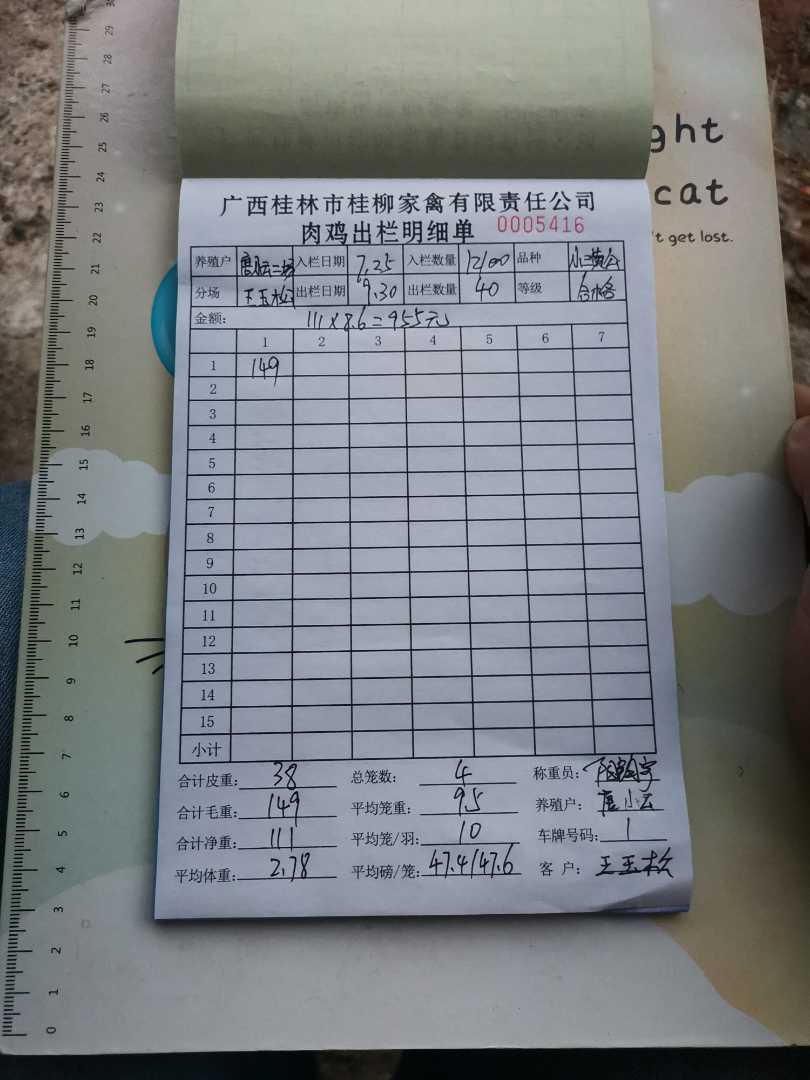 ght
cat
't get lost.
广西桂林市桂柳家禽有限责任公司
肉鸡出栏明细单 0005416
养殖户 唐小云二场 入栏日期 7.25 入栏数量 12100 品种
分场 王玉松 出栏日期 9.30 出栏数量 40 等级 合格
金额: 111×8.6=955元
1 2 3 4 5 6 7
1 149
2
3
4
5
6
7
8
9
10
11
12
13
14
15
小计
合计皮重: 38 总笼数: 4 称重员:
合计毛重: 149 平均笼重: 9.5 养殖户: 唐小云
合计净重: 111 平均笼/羽: 10 车牌号码: 1
平均体重: 2.78 平均磅/笼: 47.4/47.6 客户: 王玉松
30
29
28
27
26
25
24
23
22
21
20
19
18
17
16
15
14
13
12
11
10
9
8
7
6
5
4
3
2
1
0